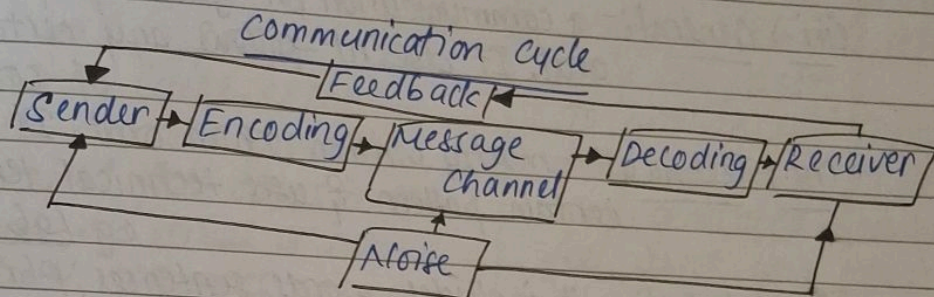 Communication cycle
Feedback
Sender Encoding Message Decoding Receiver
Channel
Noise